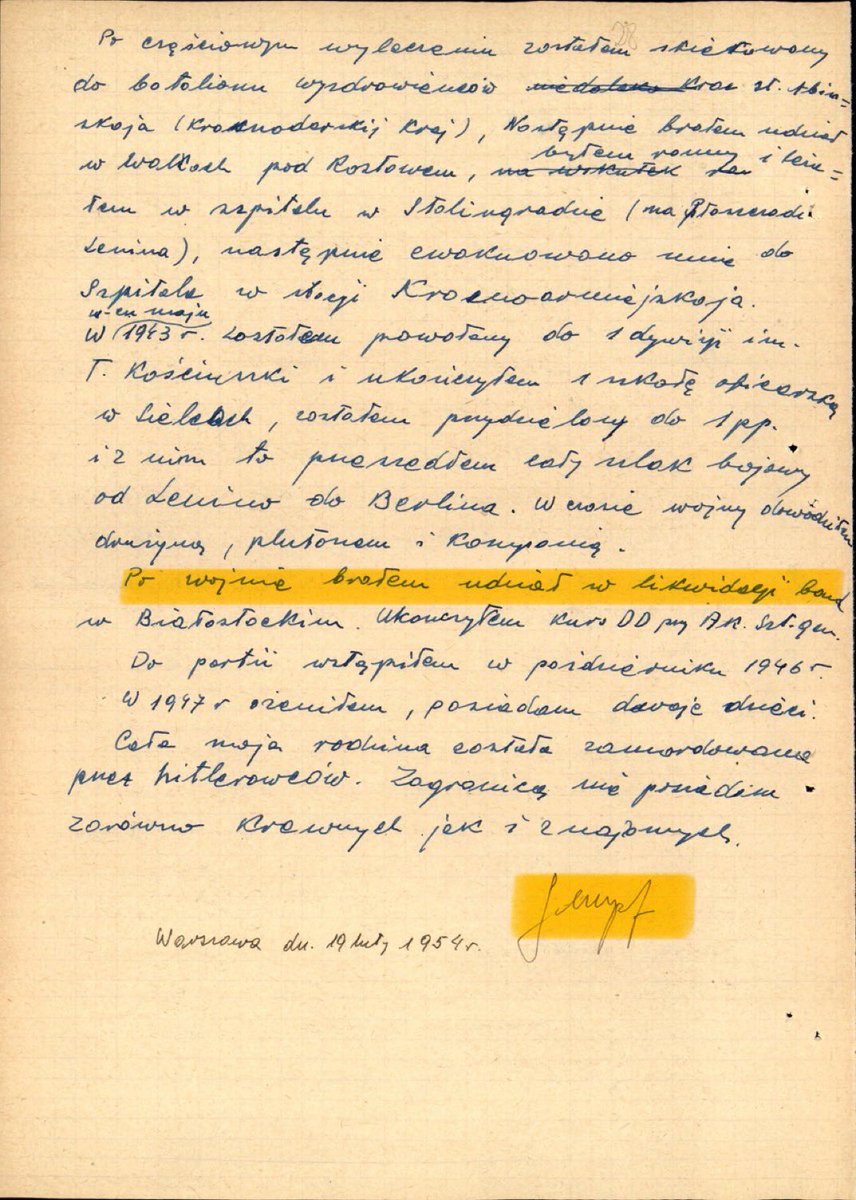 Po częściowym wyleczeniu zostałem skierowany
do batalionu wyzdrowieńców niedaleko Kras st. Abin=
skaja (Krasnodarskij Kraj), Następnie brałem udział
byłem ranny i leża=
w walkach pod Rostowem, na wskutek
łem w szpitalu w Stalingradzie (na Płoszczadi
Lenina), następnie ewakuowano mnie do
Szpitala w stacji Krasnoarmiejskaja.
w-cu maju
W 1943 r. zostałem powołany do 1 dywizji im.
T. Kościuszki i ukończyłem szkołę oficerską
w Sielcach, zostałem przydzielony do 1 pp.
i z nim to przeszedłem cały szlak bojowy
od Lenino do Berlina. W czasie wojny dowodziłem
drużyną, plutonem i kompanią.
Po wojnie brałem udział w likwidacji band
w Białostockim. Ukończyłem kurs DD przy Ak. Szt. gen.
Do partii wstąpiłem w październiku 1946 r.
W 1947 r ożeniłem, posiadam dwoje dzieci.
Cała moja rodzina została zamordowana
przez hitlerowców. Zagranicą nie posiadam
zarówno krewnych jak i znajomych.
Warszawa dn. 19 luty 1954 r.